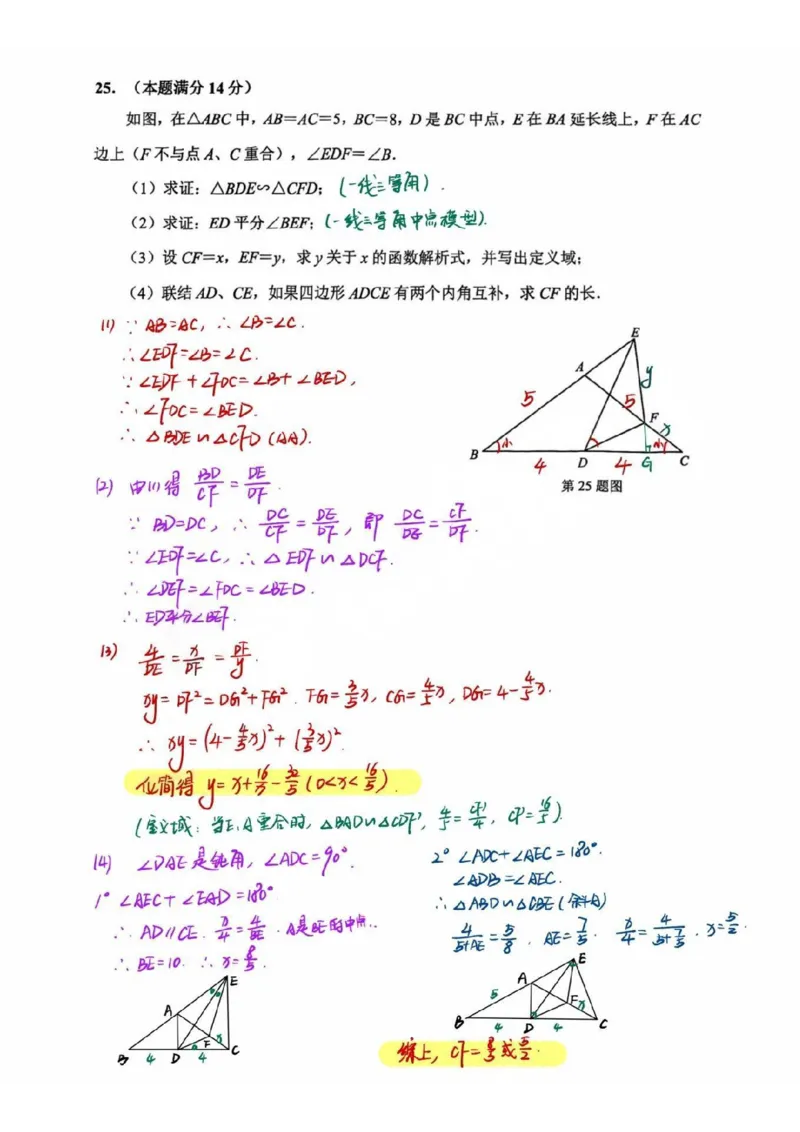 25. （本题满分 14 分）
如图，在△ABC 中，AB＝AC＝5，BC＝8，D 是 BC 中点，E 在 BA 延长线上，F 在 AC
边上（F 不与点 A、C 重合），∠EDF＝∠B．
（1）求证：△BDE∽△CFD；(一线三等角).
（2）求证：ED 平分∠BEF；(一线三等角中点模型).
（3）设 CF＝x，EF＝y，求 y 关于 x 的函数解析式，并写出定义域；
（4）联结 AD、CE，如果四边形 ADCE 有两个内角互补，求 CF 的长．
(1) ∵ AB=AC, ∴ ∠B=∠C.
∴∠EDF=∠B=∠C.
∵∠EDF+∠FDC=∠B+∠BED,
∴∠FDC=∠BED.
∴ △BDE∽△CFD (AA).
E
A
y
5
5
F
x
B
D
G
C
4
4
第 25 题图
(2) 由(1)得 BD/CF = DE/DF.
∵ BD=DC, ∴ DC/CF = DE/DF, 即 DC/DE = CF/DF.
∵∠EDF=∠C, ∴ △EDF∽△DCF.
∴ ∠DEF=∠FDC=∠BED.
∴ ED平分∠BEF.
(3) 4/DE = x/DF = DF/y.
xy=DF²=DG²+FG². FG=3/5x, CG=4/5x, DG=4-4/5x.
∴ xy=(4-4/5x)²+(3/5x)².
化简得 y=x+16/x-32/5 (0<x<16/5).
(定义域：当E、A重合时, △BAD∽△CDF, 4/5=CF/4, CF=16/5).
(4) ∠DAE是钝角, ∠ADC=90°.
1° ∠AEC+∠EAD=180°
∴ AD∥CE. x/4=4/BE. A是BE的中点.
∴ BE=10. ∴ x=8/5.
2° ∠ADC+∠AEC=180°.
∠ADB=∠AEC.
∴ △ABD∽△CBE (斜A)
4/(5+AE)=5/8. AE=7/5. x/4=4/(5+7/5). x=5/2.
E
A
F
x
B
4
D
4
C
E
A
5
F
x
B
4
D
4
C
综上, CF=8/5或5/2.